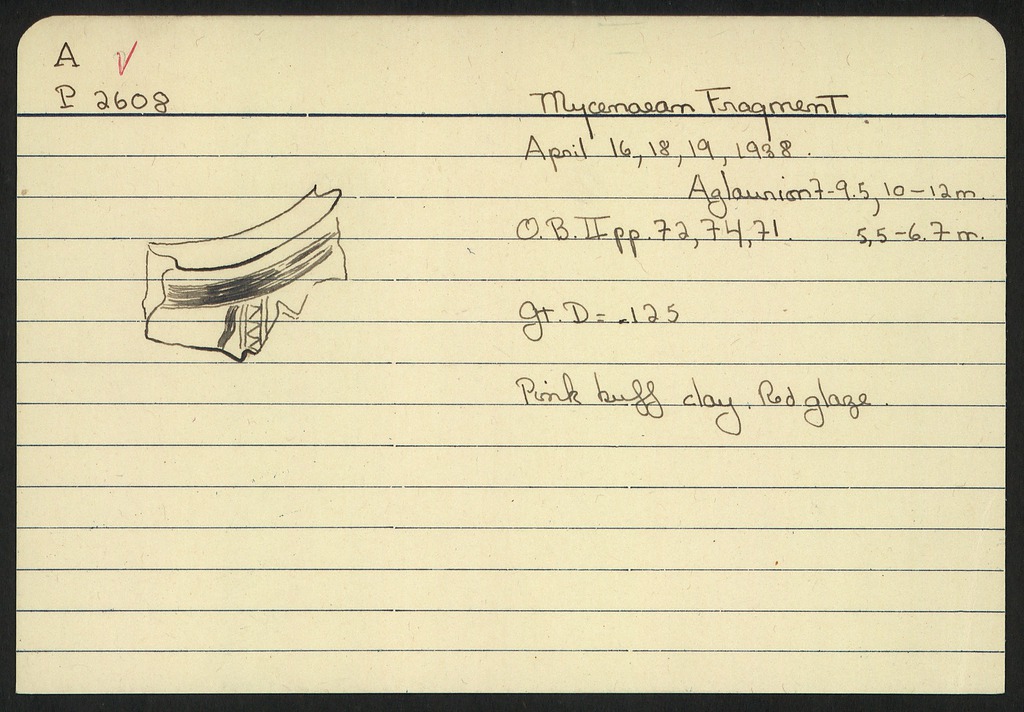 A ✓
P 2608
Mycenaean Fragment
April 16, 18, 19, 1938.
Aglaurion 7-9.5, 10-12m.
O.B. II pp. 72, 74, 71. 5,5-6.7m.
gt. D = .125
Pink buff clay. Red glaze.